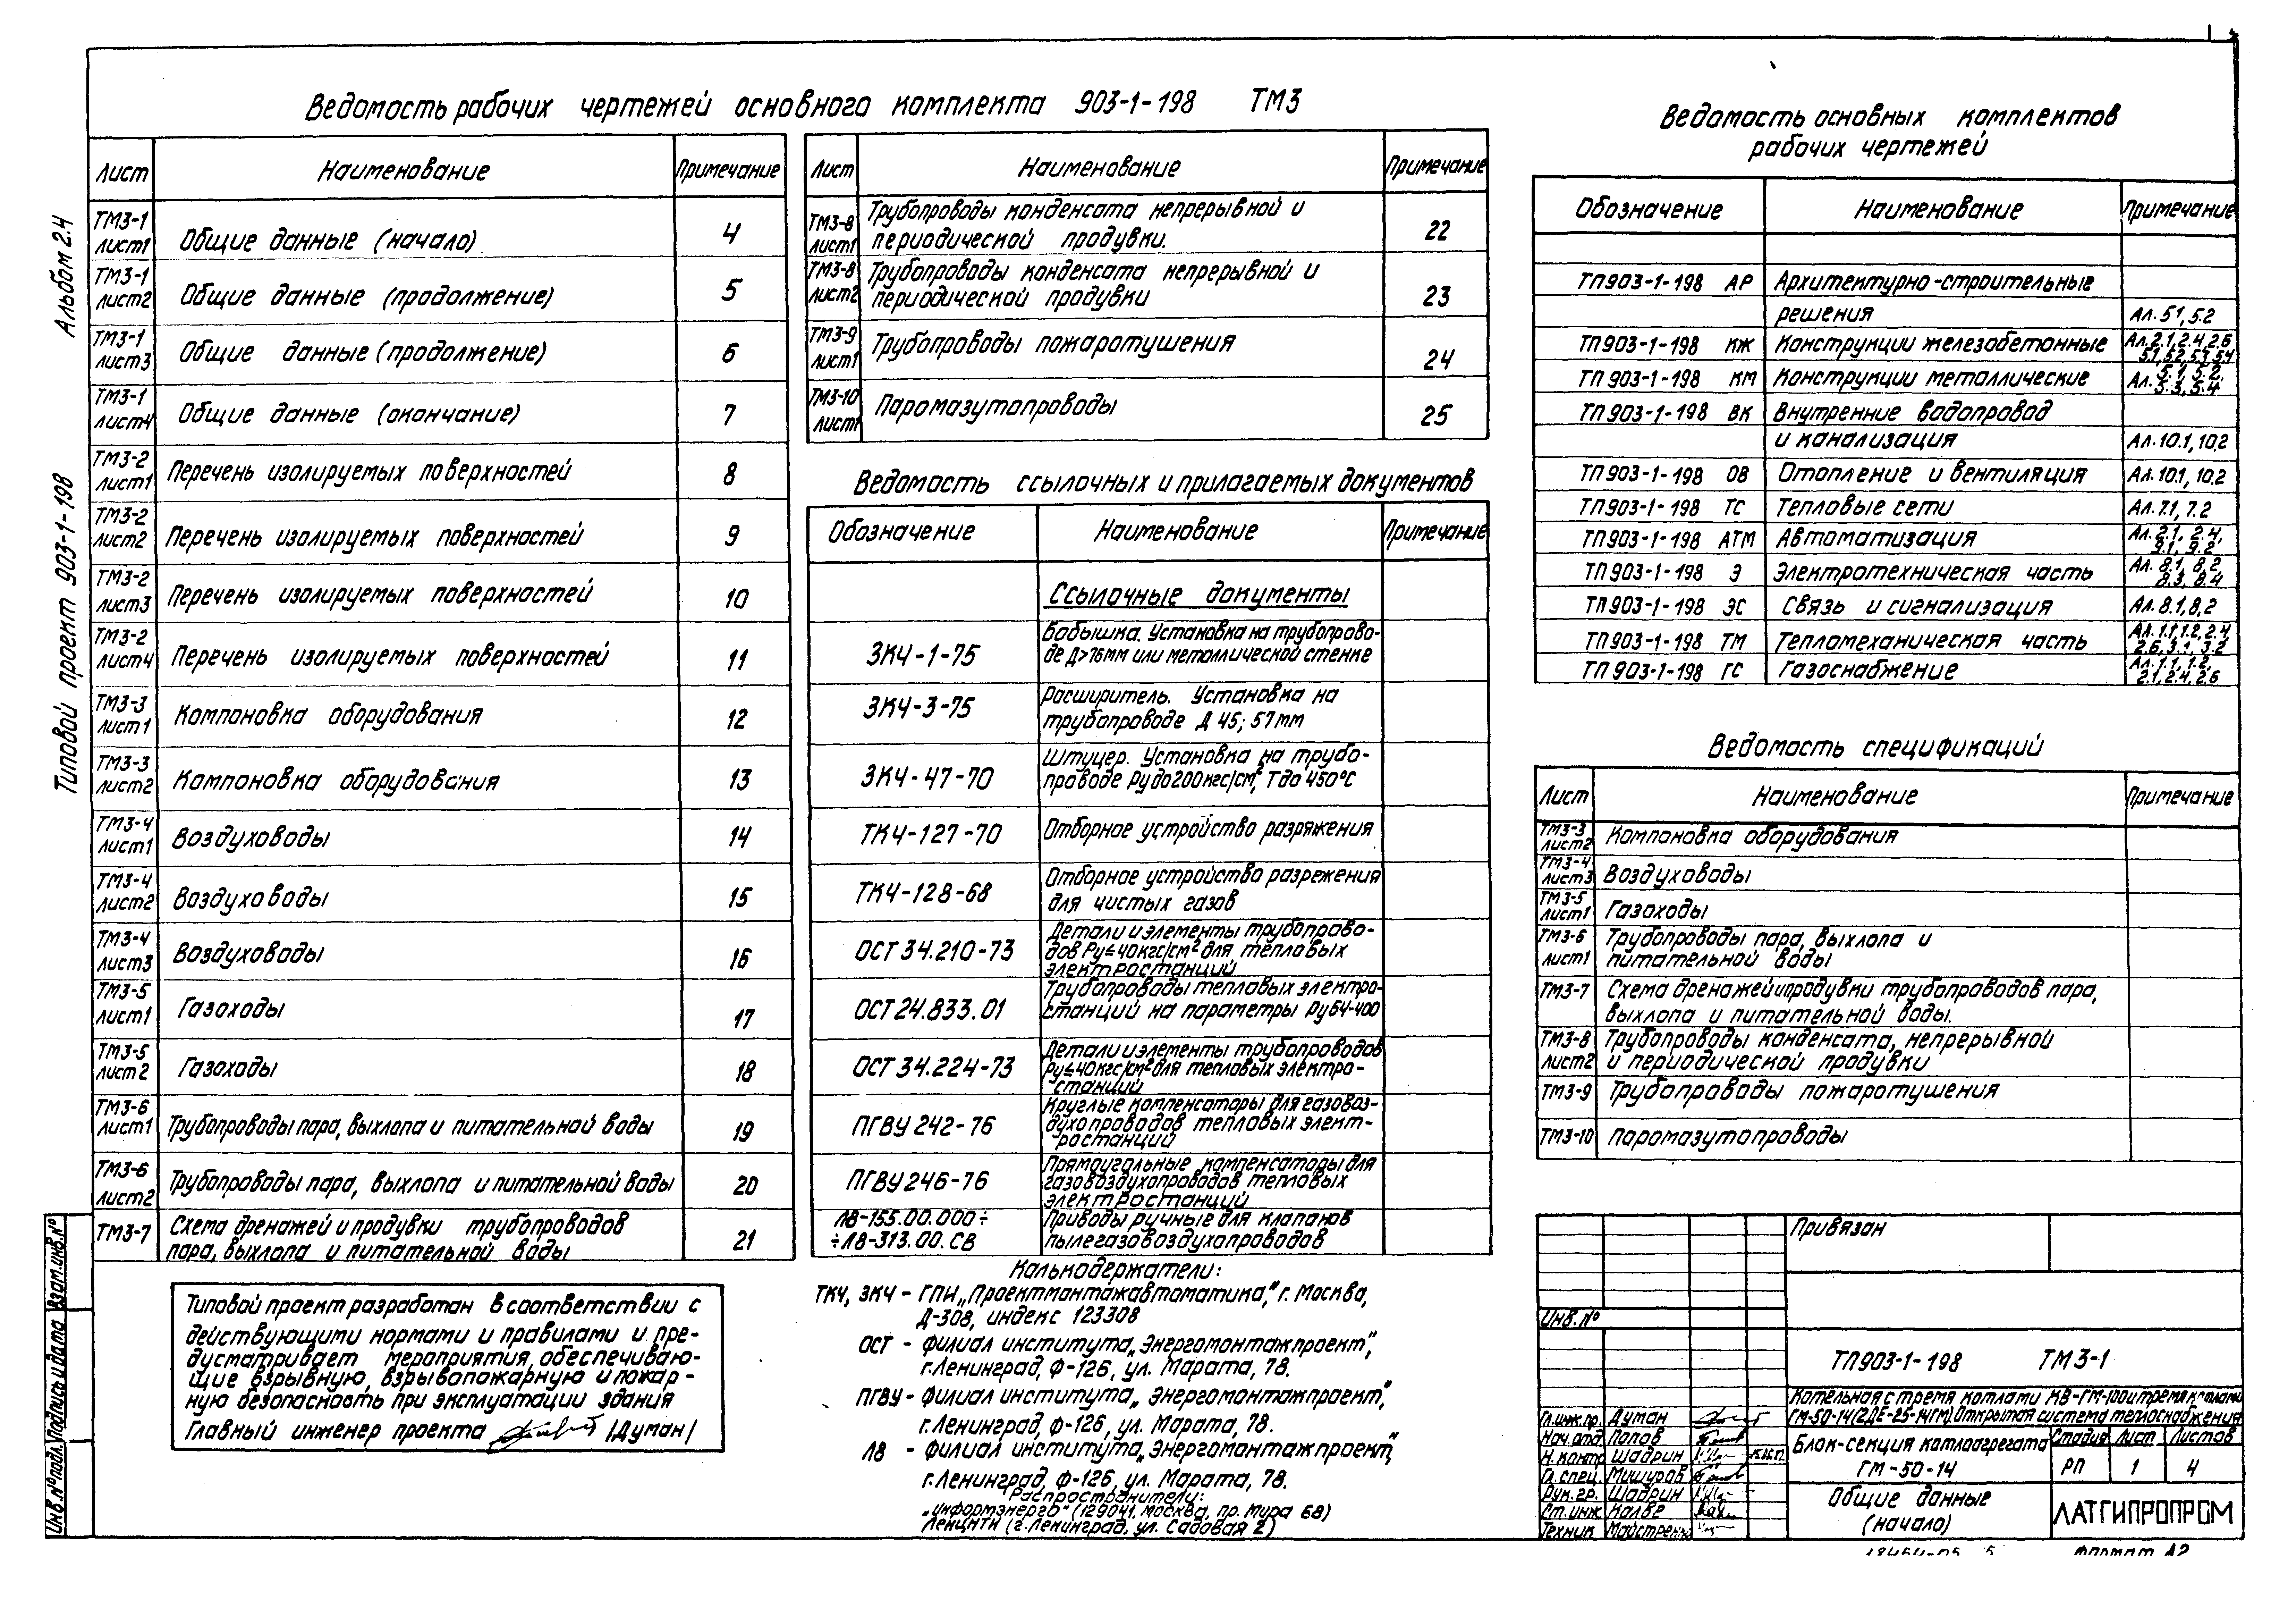 Ведомость рабочих чертежей основного комплекта 903-1-198 ТМ3
Лист Наименование Примечание
ТМ3-1 лист1 Общие данные (начало) 4
ТМ3-1 лист2 Общие данные (продолжение) 5
ТМ3-1 лист3 Общие данные (продолжение) 6
ТМ3-1 лист4 Общие данные (окончание) 7
ТМ3-2 лист1 Перечень изолируемых поверхностей 8
ТМ3-2 лист2 Перечень изолируемых поверхностей 9
ТМ3-2 лист3 Перечень изолируемых поверхностей 10
ТМ3-2 лист4 Перечень изолируемых поверхностей 11
ТМ3-3 лист1 Компоновка оборудования 12
ТМ3-3 лист2 Компоновка оборудования 13
ТМ3-4 лист1 Воздуховоды 14
ТМ3-4 лист2 Воздуховоды 15
ТМ3-4 лист3 Воздуховоды 16
ТМ3-5 лист1 Газоходы 17
ТМ3-5 лист2 Газоходы 18
ТМ3-6 лист1 Трубопроводы пара, выхлопа и питательной воды 19
ТМ3-6 лист2 Трубопроводы пара, выхлопа и питательной воды 20
ТМ3-7 Схема дренажей и продувки трубопроводов
пара, выхлопа и питательной воды 21
Типовой проект разработан в соответствии с
действующими нормами и правилами и пре-
дусматривает мероприятия, обеспечиваю-
щие взрывную, взрывопожарную и пожар-
ную безопасность при эксплуатации здания
Главный инженер проекта /Думан/
Лист Наименование Примечание
ТМ3-8 лист1 Трубопроводы конденсата непрерывной и
периодической продувки. 22
ТМ3-8 лист2 Трубопроводы конденсата непрерывной и
периодической продувки 23
ТМ3-9 лист1 Трубопроводы пожаротушения 24
ТМ3-10 лист1 Паромазутопроводы 25
Ведомость ссылочных и прилагаемых документов
Обозначение Наименование Примечание
Ссылочные документы
ЗК4-1-75 Бобышка. Установка на трубопрово-
де Д>76мм или металлической стенке
ЗК4-3-75 Расширитель. Установка на
трубопроводе Д 45; 57мм
ЗК4-47-70 Штуцер. Установка на трубо-
проводе Ру до 200 кгс/см², Т до 450°С
ТК4-127-70 Отборное устройство разряжения
ТК4-128-68 Отборное устройство разрежения
для чистых газов
ОСТ 34.210-73 Детали и элементы трубопрово-
дов Ру≤40кгс/см² для тепловых
электростанций
ОСТ 24.833.01 Трубопроводы тепловых электро-
станций на параметры Ру64-400
ОСТ 34.224-73 Детали и элементы трубопроводов
Ру≤40кгс/см² для тепловых электро-
станций
ПГВУ 242-76 Круглые компенсаторы для газовоз-
духопроводов тепловых элект-
ростанций
ПГВУ 246-76 Прямоугольные компенсаторы для
газовоздухопроводов тепловых
электростанций
Л8-155.00.000÷ Приводы ручные для клапанов
÷Л8-313.00.СВ пылегазовоздухопроводов
Калькодержатели:
ТК4, ЗК4 - ГПИ „Проектмонтажавтоматика," г. Москва,
Д-308, индекс 123308
ОСТ - филиал института „Энергомонтажпроект",
г.Ленинград, Ф-126, ул. Марата, 78.
ПГВУ - Филиал института „Энергомонтажпроект",
г.Ленинград, Ф-126, ул. Марата, 78.
Л8 - Филиал института „Энергомонтажпроект",
г.Ленинград, Ф-126, ул. Марата, 78.
Распространители:
„Информэнерго" (129041, Москва, пр. Мира 68)
ЛенЦНТИ (г. Ленинград, ул. Садовая 2)
Ведомость основных комплектов
рабочих чертежей
Обозначение Наименование Примечание
ТП903-1-198 АР Архитектурно-строительные
решения Ал. 5.1, 5.2
ТП903-1-198 КЖ Конструкции железобетонные Ал.2.1, 2.4, 2.6
5.1, 5.2, 5.3, 5.4
ТП 903-1-198 КМ Конструкции металлические Ал. 5.1, 5.2,
5.3, 5.4
ТП903-1-198 ВК Внутренние водопровод
и канализация Ал.10.1, 10.2
ТП903-1-198 ОВ Отопление и вентиляция Ал.10.1, 10.2
ТП903-1-198 ТС Тепловые сети Ал.7.1, 7.2
ТП903-1-198 АТМ Автоматизация Ал. 2.1, 2.4,
9.1, 9.2
ТП903-1-198 Э Электротехническая часть Ал. 8.1, 8.2
8.3, 8.4
ТП903-1-198 ЭС Связь и сигнализация Ал.8.1, 8.2
ТП903-1-198 ТМ Тепломеханическая часть Ал. 1.1, 1.2, 2.4
2.6, 3.1, 3.2
ТП 903-1-198 ГС Газоснабжение Ал.1.1, 1.2,
2.1, 2.4, 2.6
Ведомость спецификаций
Лист Наименование Примечание
ТМ3-3 лист2 Компоновка оборудования
ТМ3-4 лист3 Воздуховоды
ТМ3-5 лист1 Газоходы
ТМ3-6 лист1 Трубопроводы пара, выхлопа и
питательной воды
ТМ3-7 Схема дренажей и продувки трубопроводов пара,
выхлопа и питательной воды.
ТМ3-8 лист2 Трубопроводы конденсата, непрерывной
и периодической продувки
ТМ3-9 Трубопроводы пожаротушения
ТМ3-10 Паромазутопроводы
Привязан
Инв. №
ТП903-1-198 ТМ3-1
Котельная с тремя котлами КВ-ГМ-100 и тремя котлами
ГМ-50-14(2ДЕ-25-14ГМ). Открытая система теплоснабжения
Гл.инж.пр. Думан
Нач.отд. Попов
Н. контр Шадрин
Гл. спец. Мишуров
Рук. гр. Шадрин
Ст. инж Калве
Техник Майстренко
Блок-секция котлоагрегата
ГМ-50-14
Стадия Лист Листов
РП 1 4
Общие данные
(начало)
ЛАТГИПРОПРОМ
18454-05 5
Формат А2
Альбом 2.4
Типовой проект 903-1-198
Взам.инв.№
Подпись и дата
Инв.№подл.